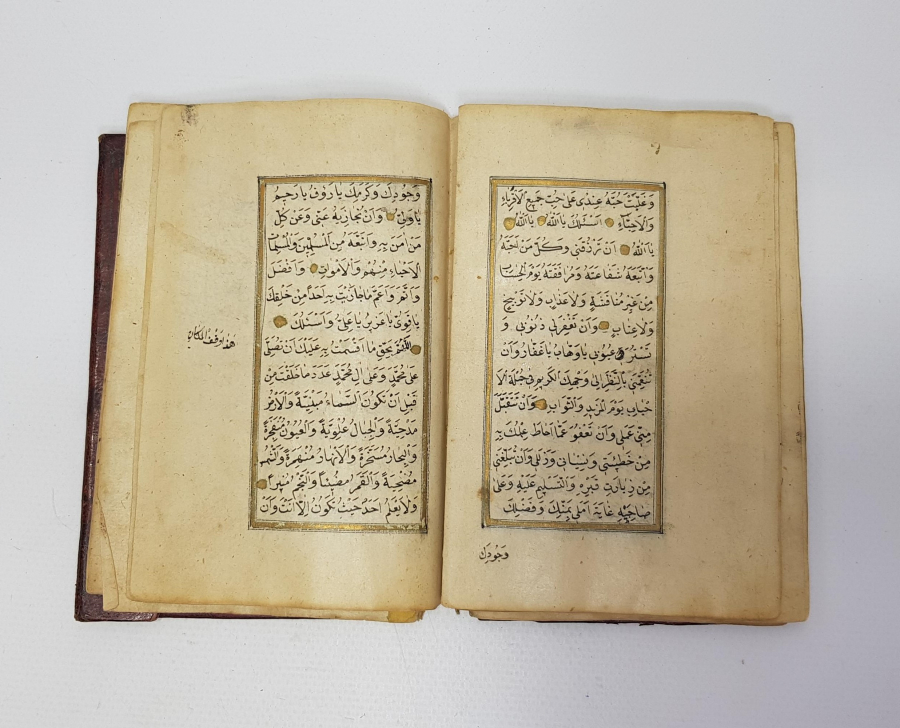 وَغَلَبَتْ حُبُّهُ عِنْدِى عَلَى حُبِّ جَمِيعِ الْاَقْرِبَاءِ
وَالْاَحِبَّاءِ اَسْئَلُكَ يَا اَللهُ يَا اَللهُ
يَا اَللهُ اَنْ تَرْزُقَنِى وَكُلَّ مَنْ اَحَبَّهُ
وَاتَّبَعَهُ شَفَاعَتَهُ وَمُرَافَقَتَهُ يَوْمَ الْحِسَابِ
مِنْ غَيْرِ مُنَاقَشَةٍ وَلَا عَذَابٍ وَلَا تَوْبِيخٍ
وَلَا عِتَابٍ وَاَنْ تَغْفِرَ لِى ذُنُوبِى وَ
تَسْتُرَ عُيُوبِى يَا وَهَّابُ يَا غَفَّارُ وَاَنْ
تُنَعِّمَنِى بِالنَّظَرِ اِلَى وَجْهِكَ الْكَرِيمِ فِى جُمْلَةِ الْاَ
حْبَابِ يَوْمَ الْمَزِيدِ وَالثَّوَابِ وَاَنْ تَتَقَبَّلَ
مِنِّى عَمَلِى وَاَنْ تَعْفُوَ عَمَّا اَحَاطَ عِلْمُكَ بِهِ
مِنْ خَطِيئَتِى وَنِسْيَانِى وَزَلَلِى وَاَنْ تُبَلِّغَنِى
مِنْ زِيَارَةِ قَبْرِهِ وَالتَّسْلِيمِ عَلَيْهِ وَعَلَى
صَاحِبَيْهِ غَايَةَ اَمَلِى بِمَنِّكَ وَفَضْلِكَ
وَجُودِكَ
وَجُودِكَ وَكَرَمِكَ يَا رَؤُفُ يَا رَحِيمُ
يَا وَلِىُّ وَاَنْ تُجَازِيَهُ عَنِّى وَعَنْ كُلِّ
مَنْ اٰمَنَ بِهِ وَاتَّبَعَهُ مِنَ الْمُسْلِمِينَ وَالْمُسْلِمَاتِ
الْاَحْيَاءِ مِنْهُمْ وَالْاَمْوَاتِ وَاَفْضَلَ
وَاَتَمَّ وَاَعَمَّ مَا جَازَيْتَ بِهِ اَحَدًا مِنْ خَلْقِكَ
يَا قَوِىُّ يَا عَزِيزُ يَا عَلِىُّ وَاَسْئَلُكَ
اَللّٰهُمَّ بِحَقِّ مَا اَقْسَمْتُ بِهِ عَلَيْكَ اَنْ تُصَلِّىَ
عَلَى مُحَمَّدٍ وَعَلَى اٰلِ مُحَمَّدٍ عَدَدَ مَا خَلَقْتَ مِنْ
قَبْلِ اَنْ تَكُونَ السَّمَاءُ مَبْنِيَّةً وَالْاَرْضُ
مَدْحِيَّةً وَالْجِبَالُ عُلْوِيَّةً وَالْعُيُونُ مُنْفَجِرَةً
وَالْبِحَارُ مُسَخَّرَةً وَالْاَنْهَارُ مُنْهَمِرَةً وَالشَّمْسُ
مُضْحِيَةً وَالْقَمَرُ مُضِيئًا وَالنَّجْمُ مُنِيرًا
وَلَا يَعْلَمُ اَحَدٌ حَيْثُ تَكُونُ اِلَّا اَنْتَ وَاَنْ